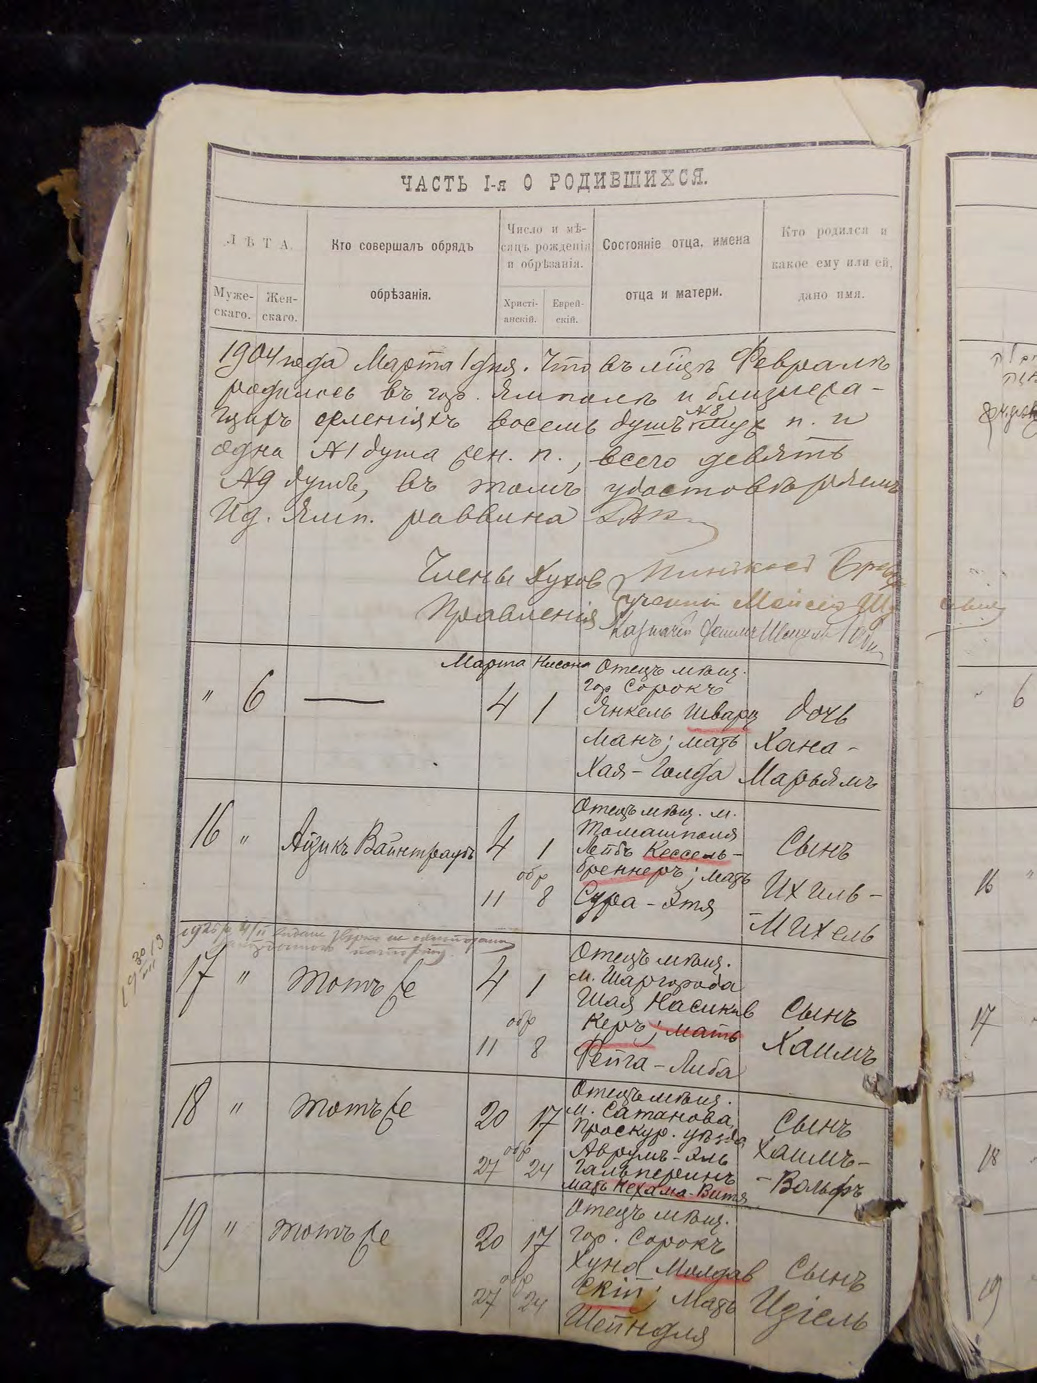 ЧАСТЬ I-я О РОДИВШИХСЯ.
ЛѢТА.
Муже-
скаго.
Жен-
скаго.
Кто совершалъ обрядъ
обрѣзанія.
Число и мѣ-
сяцъ рожденія
и обрѣзанія.
Христі-
анскій.
Еврей-
скій.
Состояніе отца, имена
отца и матери.
Кто родился и
какое ему или ей,
дано имя.
1904 года Марта 1 дня. Что въ м-цѣ Февралѣ
родилось въ гор. Ямполѣ и близлежа-
щихъ селеніяхъ восемь душъ №8 муж. п. и
одна №1 душа жен. п., всего девять
№9 душъ, въ томъ удостовѣряемъ
И д. Ямп. раввина
Члены Духов
Правленія
Ученый Мойсей
Казначей
Марта Нисона
" 6 — 4 1
Отецъ мѣщ.
гор. Сорокъ
Янкель Шварц
манъ; мать
Хая-Голда
Дочь
Хана-
Марьямъ
16 " Айзикъ Вайнтраубъ 4 1
обр
11 8
Отецъ мѣщ. м.
Томашполя
Лейбъ Кессель-
бреннеръ; мать
Сура-Этя
Сынъ
Ихиль-
-Михель
17 " тотъ же 4 1
обр
11 8
Отецъ мѣщ.
м. Шаргорода
Шая Насинов
керъ; мать
Фейга-Либа
Сынъ
Хаимъ
18 " тотъ же 20 17
обр
27 24
Отецъ мѣщ.
м. Сатанова,
Проскур. уѣзда
Аврумъ-Эль
Гальперинъ
мать Нехама-Витя
Сынъ
Хаимъ-
-Вольфъ
19 " тотъ же 20 17
обр
27 24
Отецъ мѣщ.
гор. Сорокъ
Хуна Молдав
скій; мать
Шейндля
Сынъ
Идіель
6
16
17
18
19